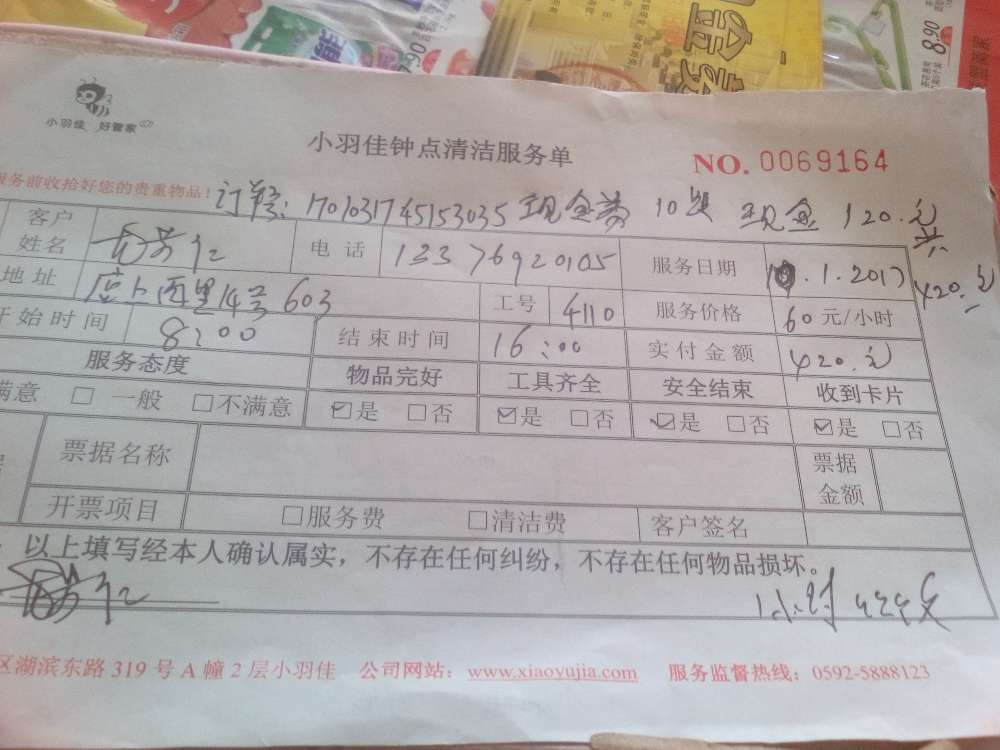 8.90
7.90
小羽佳 好管家
小羽佳钟点清洁服务单
NO. 0069164
服务前收拾好您的贵重物品!
订单号: 1701031745153035 现金券 10张 现金 120.元
共
420.元
客户姓名 电话 13376920105 服务日期 10.1.2017
地址 后卜西里14号603 工号 4110 服务价格 60元/小时
开始时间 8:00 结束时间 16:00 实付金额 420.元
服务态度 物品完好 工具齐全 安全结束 收到卡片
满意 □ 一般 □不满意 ☑是 □否 ☑是 □否 ☑是 □否 ☑是 □否
票据名称 票据金额
开票项目 □服务费 □清洁费 客户签名
以上填写经本人确认属实，不存在任何纠纷，不存在任何物品损坏。
1小时
区湖滨东路 319 号 A 幢 2 层小羽佳 公司网站：www.xiaoyujia.com 服务监督热线：0592-5888123